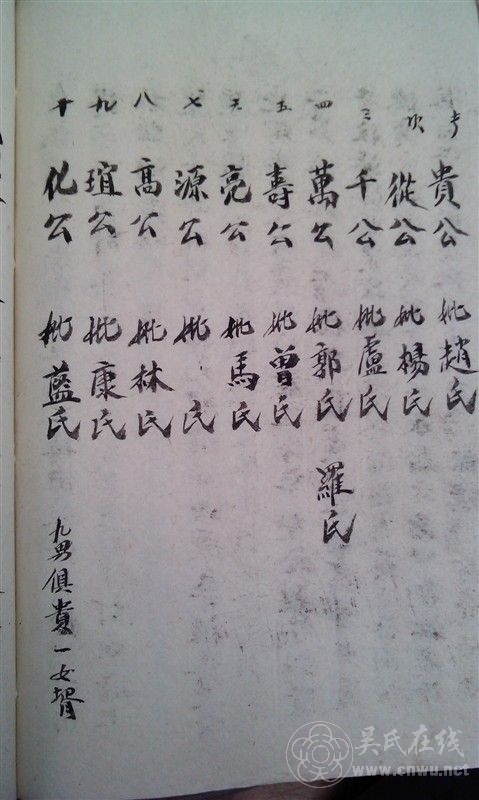 長 貴公 妣趙氏
次 從公 妣楊氏
三 千公 妣盧氏
四 萬公 妣郭氏 羅氏
五 壽公 妣曾氏
六 亮公 妣馬氏
七 源公 妣 氏
八 高公 妣林氏
九 瑄公 妣康氏
十 化公 妣藍氏 九男俱貴一女壻
吴氏在线
www.cnwu.net